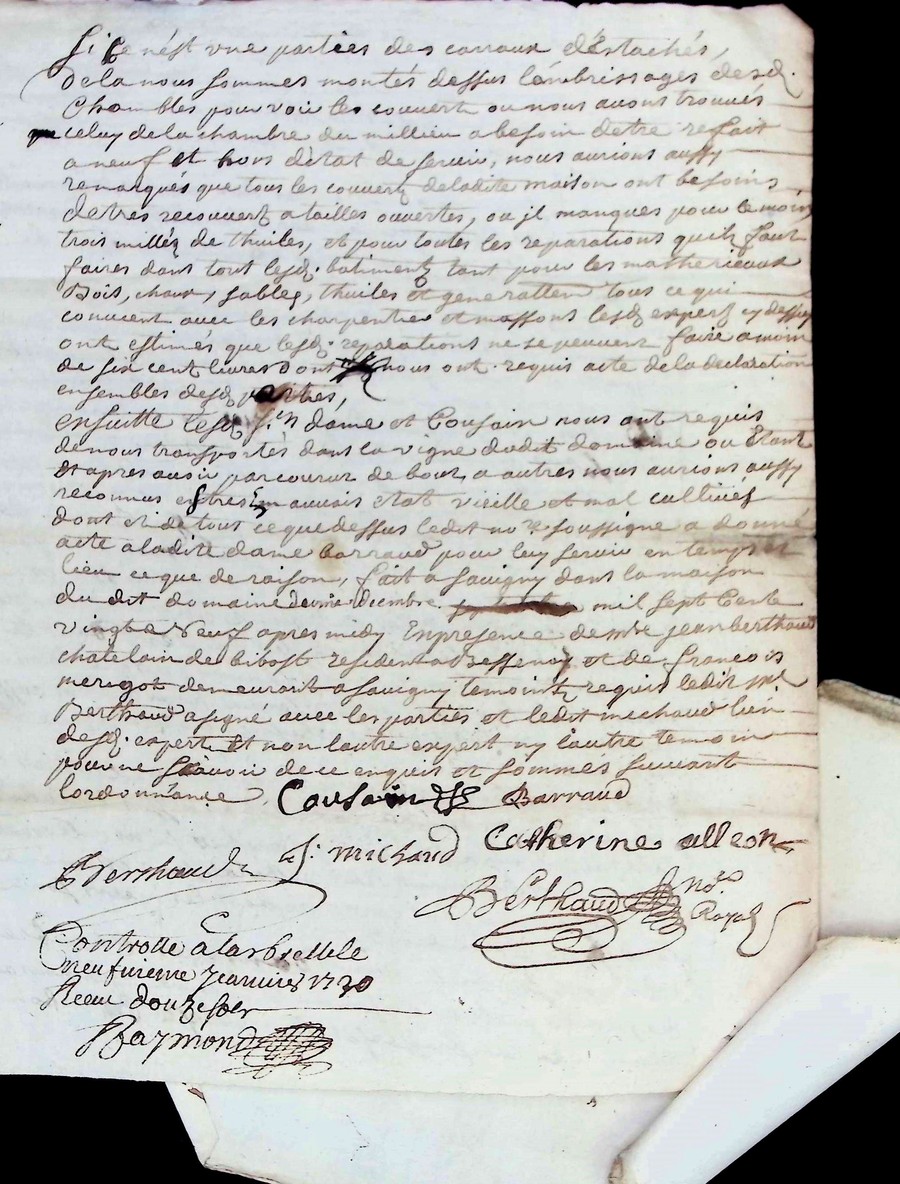 Si ce nést vne parties des carraux déstachés,
de la nous sommes montés dessus lambrissages desd.
Chambles pour voir les couvert ou nous auons trouués
que celuy de la chambre du millieu a besoin detre refait
a neuf et hors détat de seruir, nous aurions aussy
remarqués que tous les couuert de ladite maison ont besoins
detres recouuert a tailles ouvertes, ou jl manques pour le moin
trois milles de thuiles, et pour toutes les reparations quil faut
faires dans tout lesd. batiments tant pour les matherieaux
Bois, chaux, sables, thuiles et generallem tous ce qui
conuient auec les charpentier et massons lesd expers cy dessus
ont estimés que lesd. reparations ne se peuuent faire a moin
de six cent liures Dont nous ont requis acte de la declaration
ensembles desd parties,
ensuitte lesd Sr. dame et Cousain nous ont requis
de nous transportés dans la vigne dudit domaine ou Etant
Et apres auoir parcourur de bout a autres nous aurions aussy
reconnus estres En mauuais etat vieille et mal cultiués
dont et de tout ce que dessus ledit nore soussigné a donné
acte a ladite dame barraud pour luy seruir en temps et
lieu ce que de raison, fait a sauigny dans la maison
du dit domaine decembre mil sept Cents
vingt Neuf apres midy En presence de mre jean berthaud
chatelain de bibost resident a Bessenay et de francois
merigot demeurant a sauigny temoints requis ledit sr
Berthaud a signé auec les parties et ledit michaud l'un
desd. experts Et non lautre expert ny lautre temoin
pour ne scauoir de ce enquis et sommes suiuant
lordonnance. Cousain Barraud
Berthaud J. michaud Catherine alleon
Berthaud nore Royal
Controlle a larbresle le
neufuieme Januier 1730
Receu douze sols
Raymond